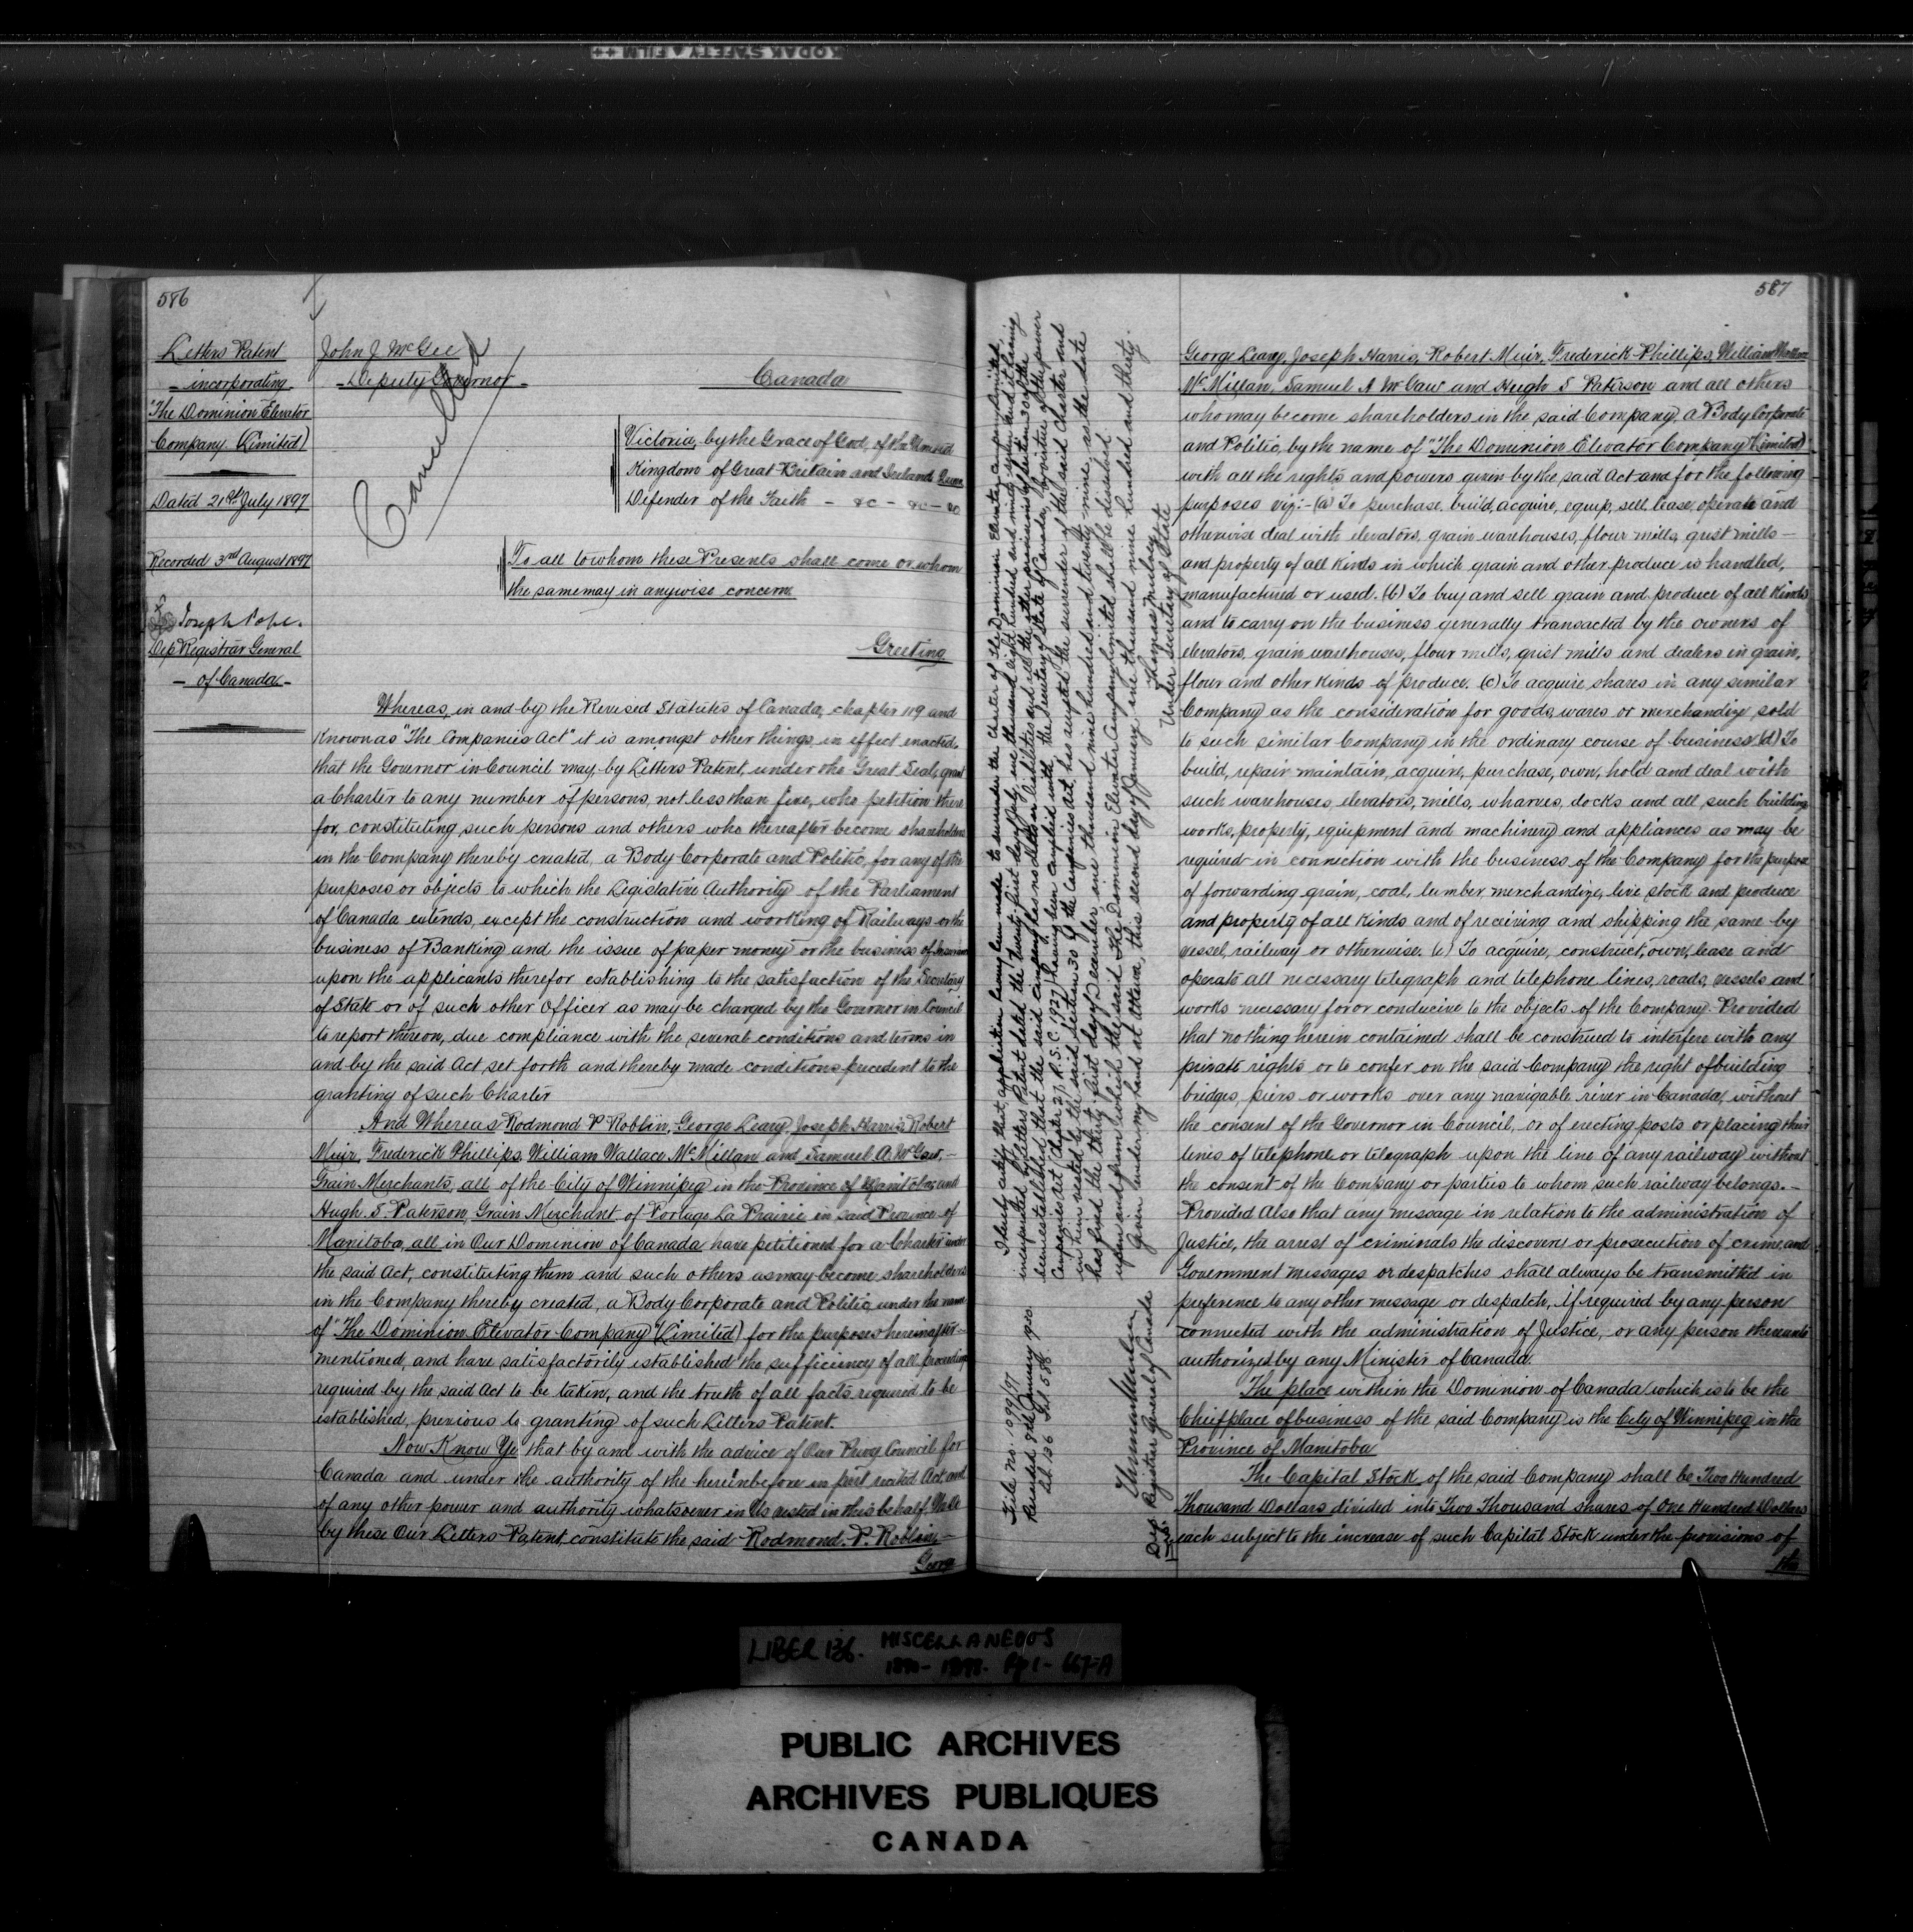 KODAK SAFETY ▲ FILM ++
586
Letters Patent
incorporating
"The Dominion Elevator
Company (Limited)
Dated 21st July 1897
Recorded 3rd August 1897
Joseph Pope.
Dep Registrar General
of Canada
John J McGee
Deputy Governor
Cancelled
Canada
Victoria, by the Grace of God, of the United
Kingdom of Great Britain and Ireland Queen
Defender of the Faith - &c - &c - &c
To all to whom these Presents shall come or whom
the same may in anywise concern
Greeting
Whereas, in and by the Revised Statutes of Canada, chapter 119 and
Known as "The Companies Act" it is amongst other things in effect enacted,
that the Governor in Council may by Letters Patent, under the Great Seal, grant
a Charter to any number of persons, not less than five, who petition there
for, constituting such persons and others who thereafter become shareholders
in the Company thereby created, a Body Corporate and Politic, for any of the
purposes or objects to which the Legislative Authority of the Parliament
of Canada extends, except the construction and working of Railways or the
business of Banking and the issue of paper money or the business of Insurance
upon the applicants therefor establishing to the satisfaction of the Secretary
of State or of such other Officer as may be charged by the Governor in Council
to report thereon, due compliance with the several conditions and terms in
and by the said Act set forth and thereby made conditions precedent to the
granting of such Charter
And Whereas Rodmond P Roblin, George Leary, Joseph Harris, Robert
Muir, Frederick Phillips, William Wallace McMillan and Samuel A. McGaw,
Grain Merchants, all of the City of Winnipeg in the Province of Manitoba, and
Hugh S. Paterson, Grain Merchant of Portage La Prairie in said Province of
Manitoba, all in Our Dominion of Canada have petitioned for a Charter under
the said Act, constituting them and such others as may become shareholders
in the Company thereby created, a Body Corporate and Politic under the name
of "The Dominion Elevator Company (Limited) for the purposes hereinafter
mentioned, and have satisfactorily established the sufficiency of all proceedings
required by the said Act to be taken, and the truth of all facts required to be
established, previous to granting of such Letters Patent.
Now Know Ye that by and with the advice of Our Privy Council for
Canada and under the authority of the hereinbefore in part recited Act and
of any other power and authority whatsoever in Us vested in this behalf, We do
by these Our Letters Patent, constitute the said Rodmond. P. Roblin,
George
587
I hereby certify that application having been made to surrender the Charter of The Dominion Elevator Company, Limited,
incorporated by Letters Patent dated the twenty first day of July, one thousand eight hundred and ninety seven, and it having
been established that the said Company has no debts or liabilities and all the other provisions of Section 30 of the
Companies Act (Chapter 27, R.S.C. 1927) having been complied with, the Secretary of State of Canada, by virtue of the power
in him vested by the said Section 30 of the Companies Act, has accepted the surrender of the said Charter and
has fixed the thirty first day of December, one thousand nine hundred and twenty nine, as the date
upon and from which the said The Dominion Elevator Company, Limited shall be dissolved.
Given under my hand at Ottawa, this second day of January, one thousand nine hundred and thirty.
Thomas Mulvey
Under Secretary of State
File no. 1099/97
Recorded 9th January 1930.
Lib 136 Fol 586
Dep. Registrar General of Canada
George Leary, Joseph Harris, Robert Muir, Frederick Phillips, William Wallace
McMillan, Samuel A McGaw and Hugh S Paterson and all others
who may become shareholders in the said Company, a Body Corporate
and Politic, by the name of "The Dominion Elevator Company (Limited)
with all the rights and powers given by the said Act and for the following
purposes viz:- (a) To purchase, build, acquire, equip, sell, lease, operate and
otherwise deal with elevators, grain warehouses, flour mills, grist mills
and property of all Kinds in which grain and other produce is handled,
manufactured or used. (b) To buy and sell grain and produce of all Kinds
and to carry on the business generally transacted by the owners of
elevators, grain warehouses, flour mills, grist mills and dealers in grain,
flour and other Kinds of produce. (c) To acquire shares in any similar
Company as the consideration for goods, wares or merchandize sold
to such similar Company in the ordinary course of business. (d) To
build, repair maintain, acquire, purchase, own, hold and deal with
such warehouses, elevators, mills, wharves, docks and all such building
works, property, equipment and machinery and appliances as may be
required in connection with the business of the Company for the purpose
of forwarding grain, coal, lumber, merchandize, live stock and produce
and property of all Kinds and of receiving and shipping the same by
vessel, railway or otherwise. (e) To acquire, construct, own, lease and
operate all necessary telegraph and telephone lines, roads, vessels and
works necessary for or conducive to the objects of the Company. Provided
that nothing herein contained shall be construed to interfere with any
private rights or to confer on the said Company the right of building
bridges, piers or works over any navigable river in Canada, without
the consent of the Governor in Council, or of erecting posts or placing their
lines of telephone or telegraph upon the line of any railway without
the consent of the Company or parties to whom such railway belongs.
Provided Also that any message in relation to the administration of
Justice, the arrest of criminals the discovery or prosecution of crime, and
Government messages or despatches shall always be transmitted in
preference to any other message or despatch, if required by any person
connected with the administration of Justice, or any person thereunto
authorized by any Minister of Canada.
The place within the Dominion of Canada which is to be the
Chief place of business of the said Company is the City of Winnipeg in the
Province of Manitoba
The Capital Stock of the said Company shall be Two Hundred
Thousand Dollars divided into Two Thousand shares of One Hundred Dollars
each subject to the increase of such Capital Stock under the provisions of
the
LIBER 136. MISCELLANEOUS
Pp 1 - 667-A
PUBLIC ARCHIVES
ARCHIVES PUBLIQUES
CANADA